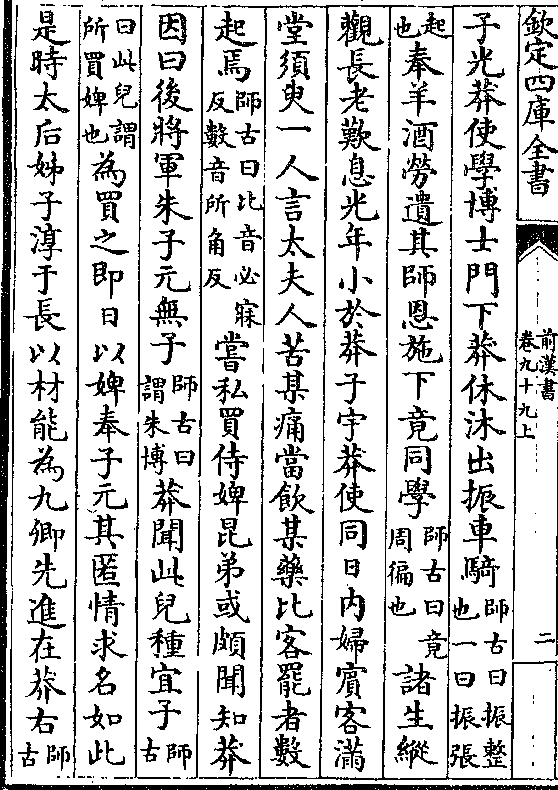 欽定四庫全書
前漢書
卷九十九上
二
子光莽使學博士門下莽休沐出振車騎師古曰振整也一曰振張
起也奉羊酒勞遺其師恩施下竟同學師古曰竟周徧也諸生縱
觀長老歎息光年小於莽子宇莽使同日内婦賔客滿
堂須臾一人言太夫人苦某痛當飲某藥比客罷者數
起焉師古曰比音必寐反數音所角反嘗私買侍婢昆弟或頗聞知莽
因曰後將軍朱子元無子師古曰謂朱博莽聞此兒種宜子師古
曰此兒謂所買婢也為買之即日以婢奉子元其匿情求名如此
是時太后姊子淳于長以材能為九卿先進在莽右師古